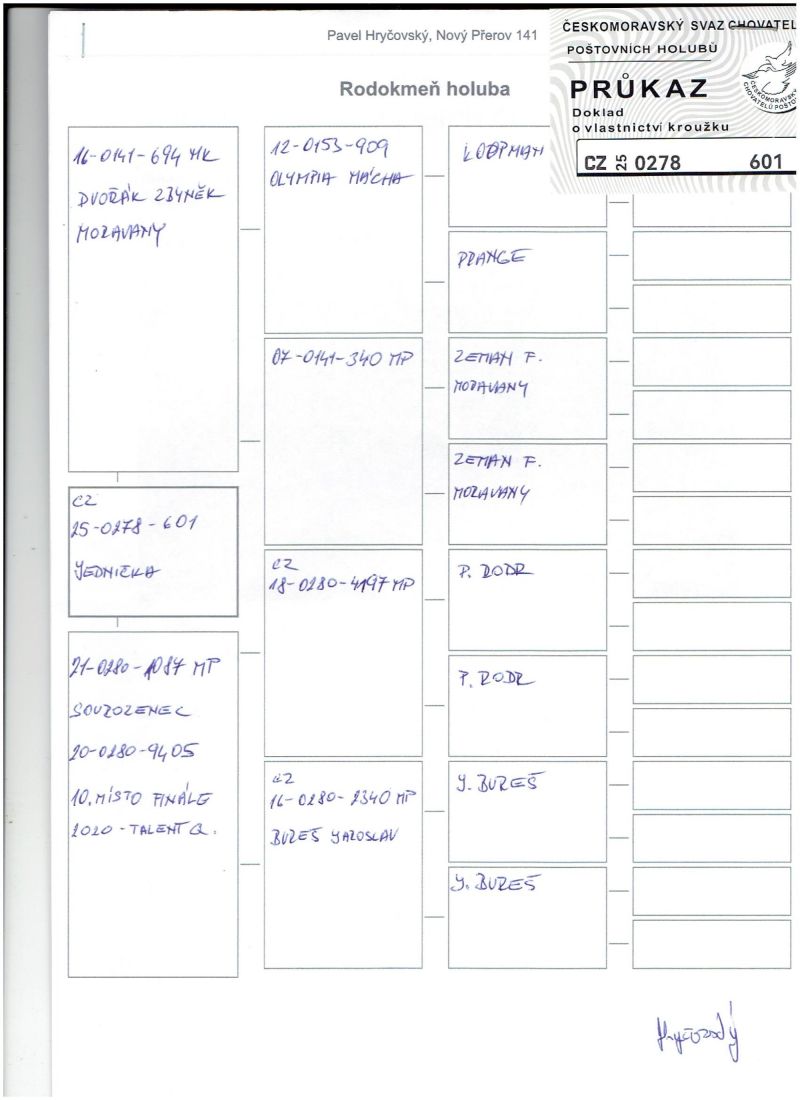 Pavel Hryčovský, Nový Přerov 141
Rodokmeň holuba
ČESKOMORAVSKÝ SVAZ CHOVATEL
POŠTOVNÍCH HOLUBŮ
PRŮKAZ
Doklad
o vlastnictví kroužku
CZ 25 0278 601
16-0141-694 MK
DVOŘÁK ZBYNĚK
MORAVANY
CZ
25-0278-601
JEDNIČKA
21-0280-1087 MP
SOUROZENEC
20-0280-9405
10. MÍSTO FINÁLE
2020-TALENT Q.
12-0153-909
OLYMPIA MÁCHA
07-0141-340 MP
CZ
18-0280-4197 MP
CZ
16-0280-2340 MP
BUREŠ JAROSLAV
KOOPMAN
PRANGE
ZEMAN F.
MORAVANY
ZEMAN F.
MORAVANY
P. RODR
P. RODR
J. BUREŠ
J. BUREŠ